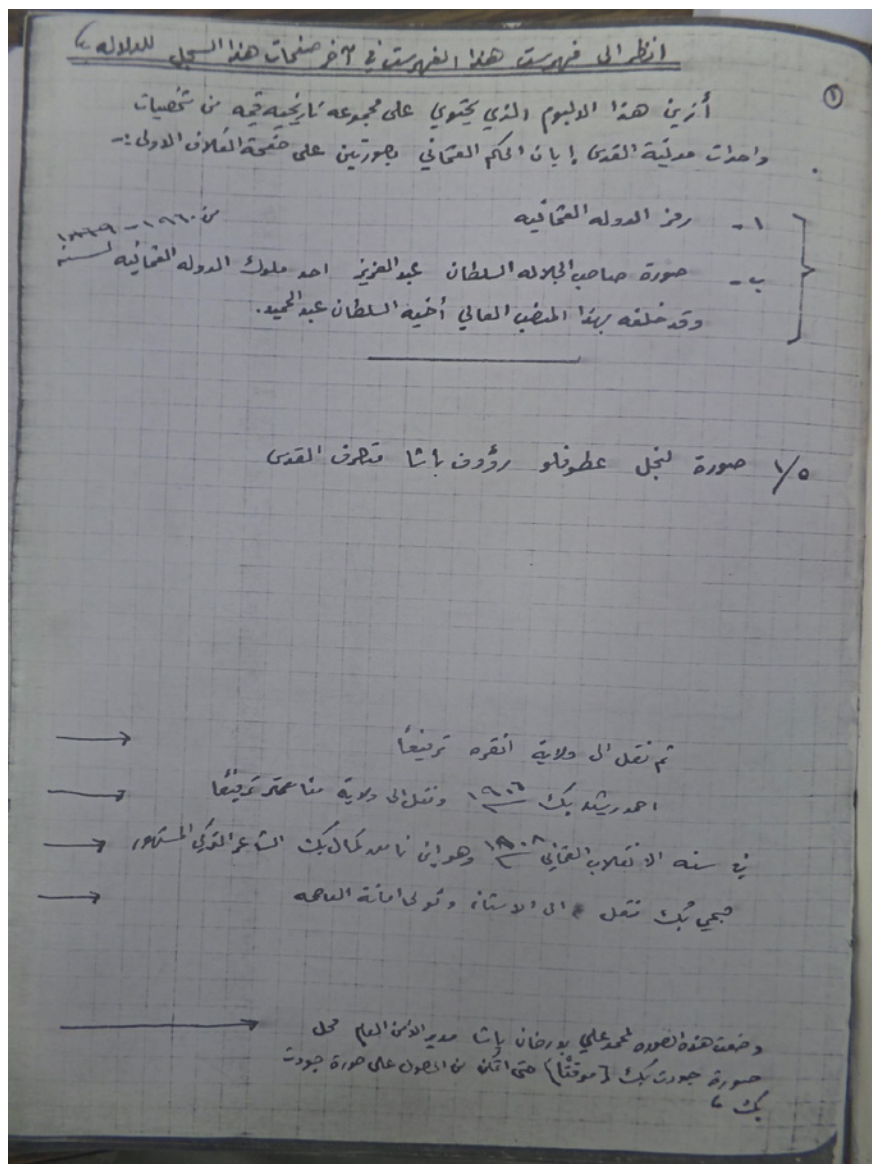 انظر الى فهرست هذا الفهرست في آخر صفحات هذا السجل للدلاله
١
أزين هذا الالبوم الذي يحتوي على مجموعه تاريخيه قيمه من شخصيات
واحداث مدينة القدس إبان الحكم العثماني بصورتين على صفحة الغلاف الاولى :-
١- رمز الدوله العثمانيه
ب- صورة صاحب الجلاله السلطان عبد العزيز احد ملوك الدوله العثمانيه لسنة
من ١٩٦٠ -
وقد خلفه بهذا المنصب العالي أخيه السلطان عبد الحميد.
١/٥ صورة لنجل عطوفتلو رؤوف باشا متصرف القدس
ثم نقل الى ولاية انقره ترفيعاً
احمد رشيد بك ١٩٠٦ ونقل الى ولاية مناستر ترفيعاً
في سنه الانقلاب العثماني ١٩٠٨ وهو ابن نامق كمال بك الشاعر التركي المشهور
صبحي بك نقل الى الاستانه وتولى امانة العاصمه
وضعت هذه الصوره لمحمد علي بدرخان باشا مدير الأمن العام محل
صورة جودت بك (موقتاً) حتى اتمكن من الحصول على صورة جودت
بك